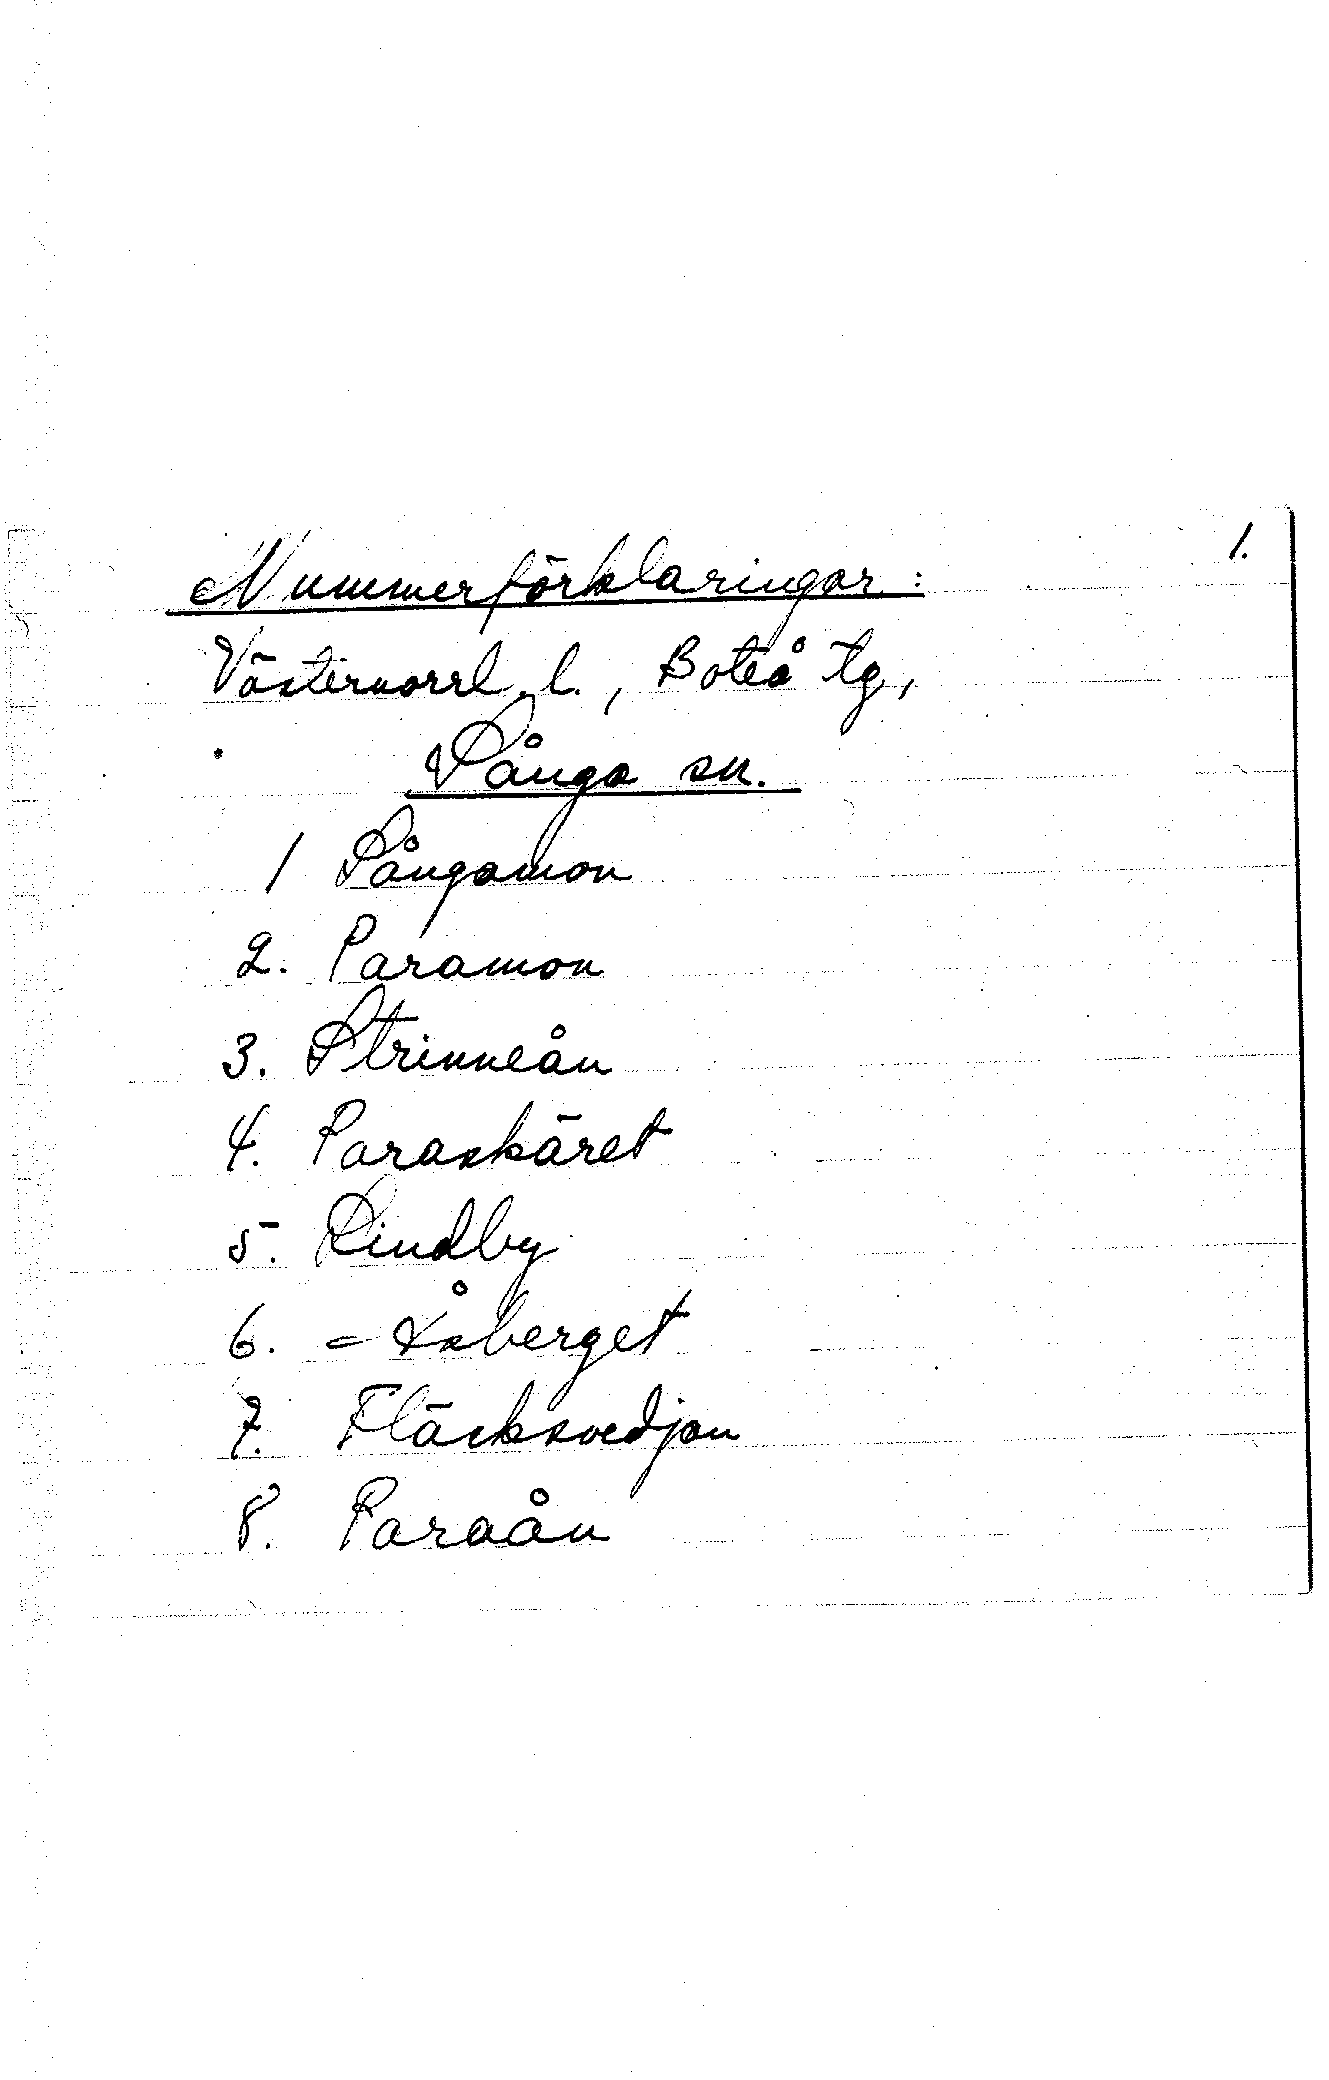 1.
Nummerförklaringar:
Västernorrl. l., Boteå tg,
Sånga sn.
1 Sångamon
2. Paramon
3. Strinneån
4. Paraskäret
5. Lindby
6. = Åsberget
7. Fläcksvedjan
8. Paraån